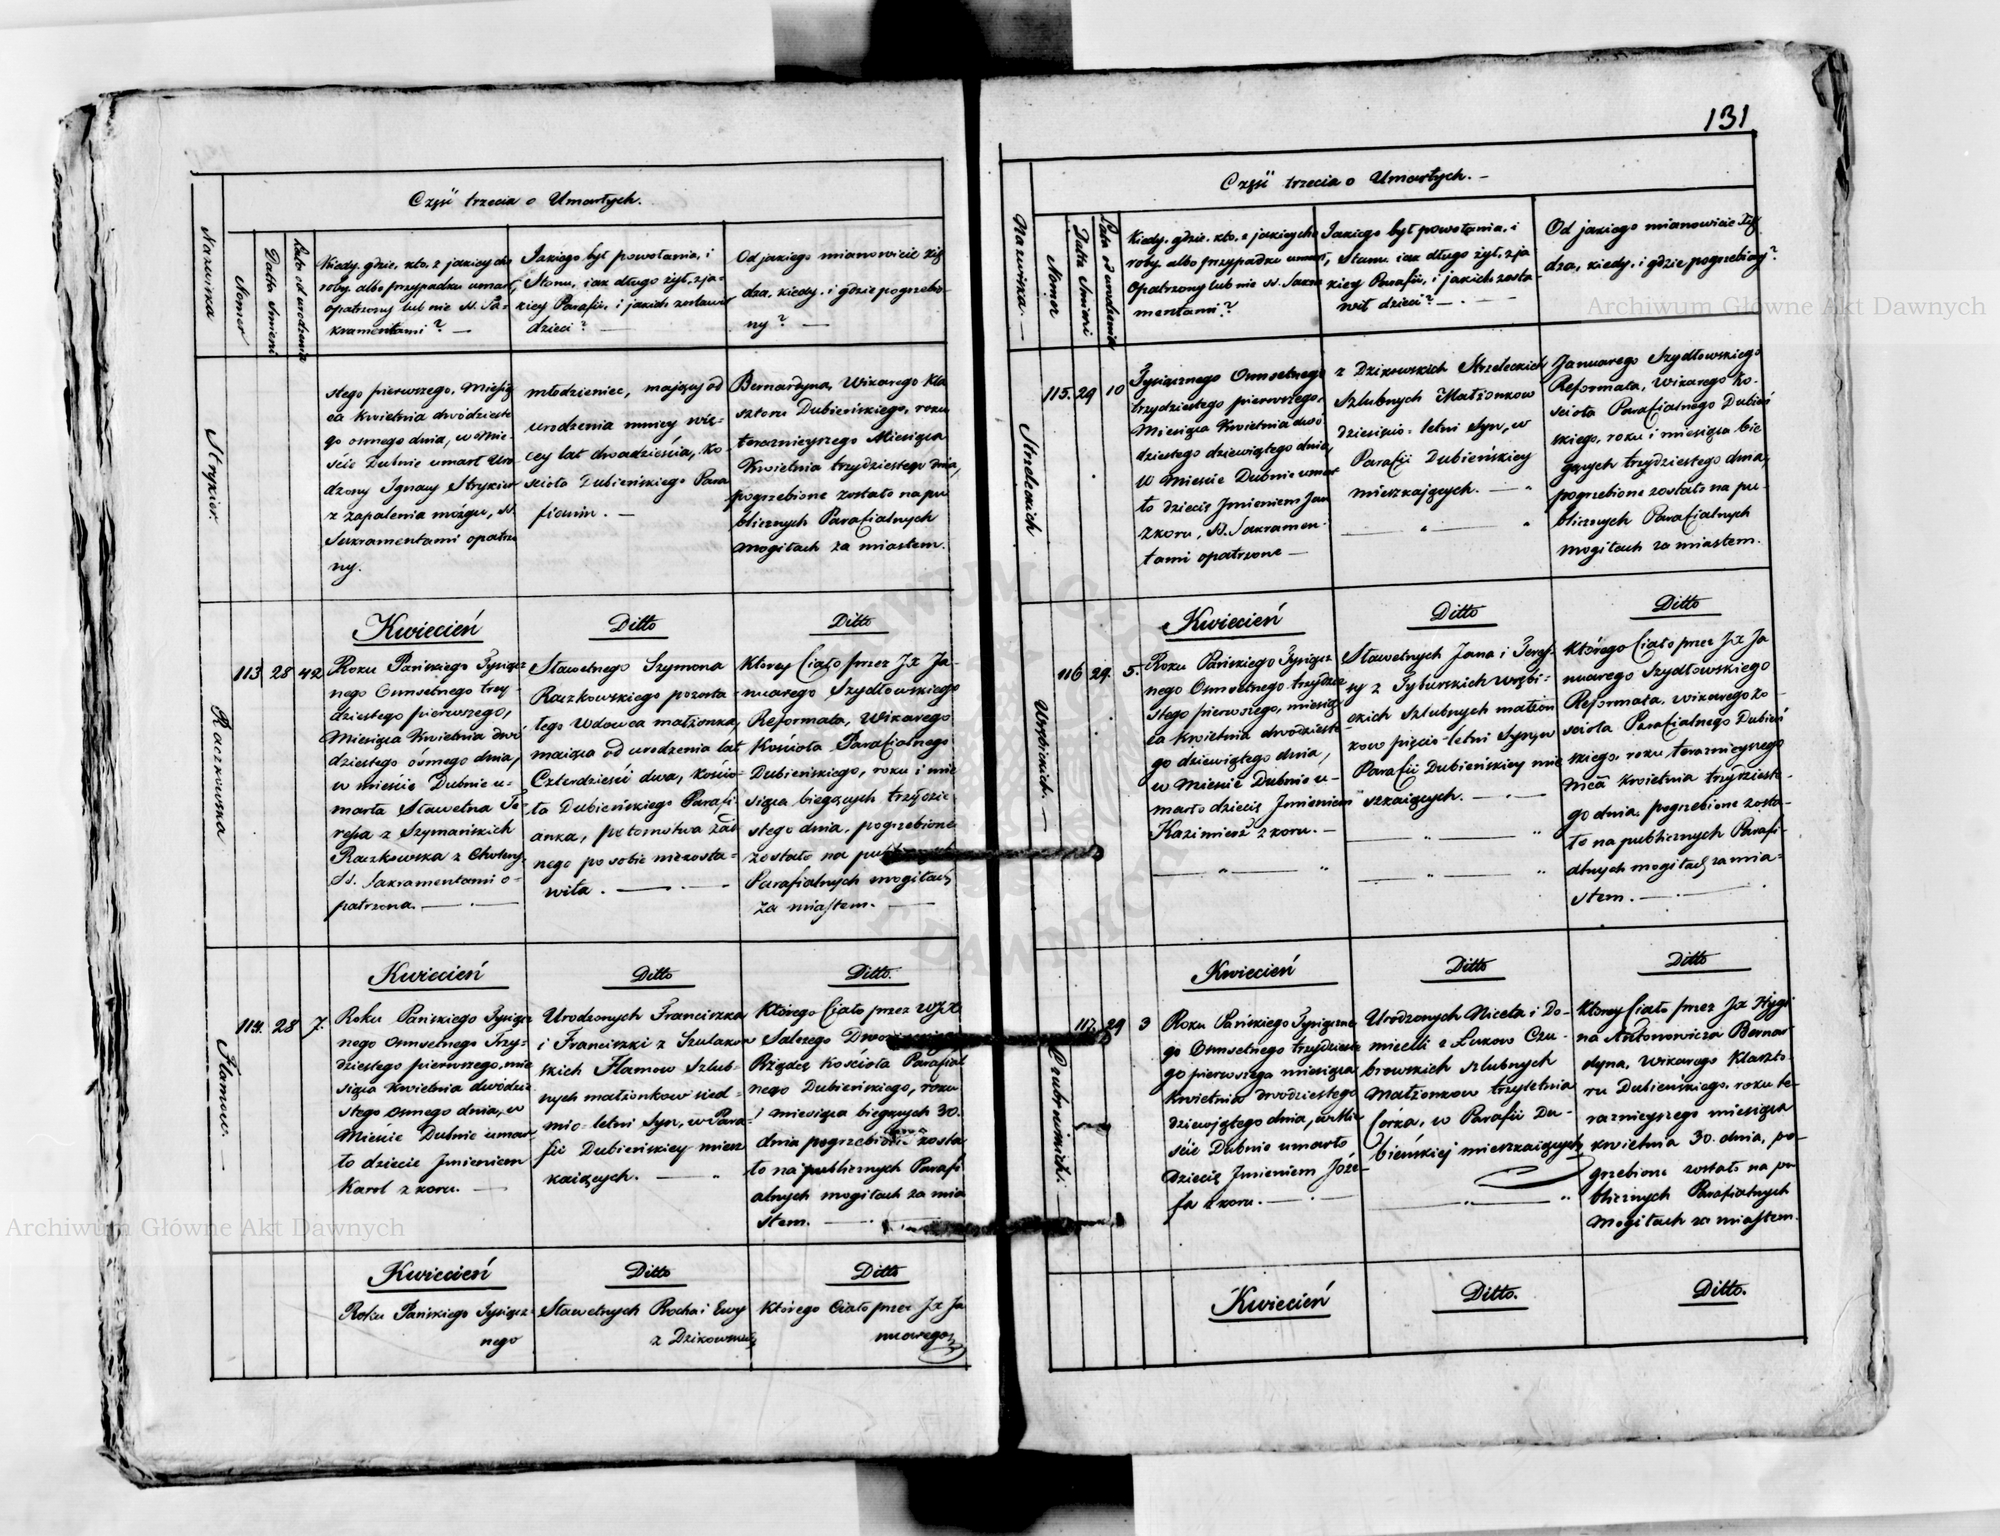 131
Część trzecia o Umarłych.
Nazwiska
Nomer
Datta Śmierci
Lata od urodzenia
Kiedy, gdzie, kto, z jakiey cho
roby albo przypadku umarł,
opatrzony lub nie SS. Sa-
kramentami? —
Jakiego był powołania, i
Stanu, iak długo żył, z ja-
kiey Parafii, i jakich zostawił
dzieci? —
Od jakiego mianowicie Xię
dza, kiedy, i gdzie pogrzebio
ny? —
Strykier.
stego pierwszego, Miesią
ca Kwietnia dwódzieste
go osmego dnia, w Mie
ście Dubnie umarł Uro
dzony Ignacy Strykier
z zapalenia mózgu, SS.
Sakramentami opatrzo
ny.
młodzieniec, maiący od
urodzenia mniey wię-
cey lat dwadzieścia, Ko-
ścioła Dubieńskiego Para
fianin. —
Bernardyna, Wikarego Kla
sztoru Dubieńskiego, roku
teraznieyszego Miesiąca
Kwietnia trzydziestego dnia,
pogrzebione zostało na pu
blicznych Parafialnych
mogiłach za miastem.
Kwiecień
Ditto
Ditto
Raczkowska
113. 28 42
Roku Pańskiego Tysiącz
nego Osmsetnego trzy-
dziestego pierwszego,
Miesiąca Kwietnia dwó
dziestego ósmego dnia,
w mieście Dubnie u-
marła Sławetna Te
ressa z Szymańskich
Raczkowska z Cholery,
SS. Sakramentami o-
patrzona. —
Sławetnego Szymona
Raczkowskiego pozosta-
łego Wdowca małżonka,
maiąca od urodzenia lat
Czterdzieści dwa, kościo-
ła Dubieńskiego Parafi
anka, potomstwa żad
nego po sobie niezosta-
wiła. —
Ktorey Ciało przez JX Ja-
nuarego Szydłowskiego
Reformata, Wikarego
Kościoła Parafialnego
Dubieńskiego, roku i mie
siąca bieżących trzydzie
stego dnia, pogrzebione
zostało na publicznych
Parafialnych mogiłach
za miastem. —
Kwiecień
Ditto
Ditto.
Flamow. —
114. 28 7.
Roku Pańskiego Tysiącz
nego Osmsetnego Trzy-
dziestego pierwszego, mie
siąca Kwietnia dwódzie
stego osmego dnia, w
Mieście Dubnie umar
ło dziecie Jmieniem
Karol z koru. —
Urodzonych Franciszka
i Franciszki z Szulakow
skich Flamow Szlub-
nych małżonkow sied-
mio-letni Syn, w Para-
fii Dubieńskiey miesz
kaiących. —
Którego Ciało przez WJX
Salezego
Rządcę Kościoła Parafial
nego Dubieńskiego, roku
i miesiąca bieżących 30.
dnia pogrzebione zosta
ło na publicznych Parafi
alnych mogiłach za mia
stem. —
Kwiecień
Ditto
Ditto
Roku Pańskiego Tysiącz
nego
Sławetnych Rocha i Ewy
z Dzikowskich
Którego Ciało przez JX Ja
nuarego
Część trzecia o Umarłych. —
Nazwiska. —
Nomer
Datta Śmierci
Lata od urodzenia
Kiedy, gdzie, kto, z jakiey cho
roby albo przypadku umarł,
opatrzony lub nie SS. Sakra
mentami? —
Jakiego był powołania, i
Stanu iak długo żył, z ja
kiey Parafii, i jakich zosta-
wił dzieci? —
Od jakiego mianowicie Xię
dza, kiedy, i gdzie pogrzebiony?
Strzeleckich
115. 29 10
Tysiącznego Osmsetnego
trzydziestego pierwszego,
Miesiąca Kwietnia dwó
dziestego dziewiątego dnia,
w Mieście Dubnie umar
ło dziecię Jmieniem Jan
z koru, SS. Sakramen-
tami opatrzone —
z Dzikowskich Strzeleckich
Szlubnych Małżonkow
dziesięcio-letni Syn, w
Parafii Dubieńskiey
mieszkaiących. —
Januarego Szydłowskiego
Reformata, Wikarego Ko-
ścioła Parafialnego Dubień
skiego, roku i miesiąca bie
żących trzydziestego dnia,
pogrzebione zostało na pu-
blicznych Parafialnych
mogiłach za miastem.
Kwiecień
Ditto
Ditto
Wrębickich. —
116 29. 5.
Roku Pańskiego Tysiącz
nego Osmsetnego trzydzie
stego pierwszego, miesią
ca kwietnia dwódzieste
go dziewiątego dnia,
w Mieście Dubnie u-
marło dziecię Jmieniem
Kazimierz z koru. —
Sławetnych Jana i Teres-
sy z Tyburskich Wrębi-
ckich Szlubnych małżon
kow pięcio-letni Syn, w
Parafii Dubieńskiey mie
szkaiących. —
Którego Ciało przez JX Ja
nuarego Szydłowskiego
Reformata, Wikarego ko-
ścioła Parafialnego Dubień
skiego, roku teraznieyszego
mca kwietnia trzydzieste-
go dnia, pogrzebione zosta-
ło na publicznych Parafi-
alnych mogiłach za mia-
stem. —
Kwiecień
Ditto
Ditto
Czubrowskich.
117. 29 3
Roku Pańskiego Tysiączne
go Osmsetnego trzydzieste
go pierwszego miesiąca
Kwietnia dwodziestego
dziewiątego dnia, w Mie
ście Dubnie umarło
Dziecię Jmieniem Józe-
fa z koru. —
Urodzonych Niceta i Do-
miceli z Łukow Czu-
browskich szlubnych
Małżonkow trzyletnia
Córka, w Parafii Du-
bieńskiej mieszkaiących,
Ktorey Ciało przez JX Hygi
na Antonowicza Bernar
dyna, Wikarego Klaszto-
ru Dubienskiego, roku te-
raznieyszego miesiąca
kwietnia 30. dnia, po-
grzebione zostało na pu
blicznych Parafialnych
Mogiłach za miastem.
Kwiecień
Ditto.
Ditto.
Archiwum Główne Akt Dawnych
Archiwum Główne Akt Dawnych